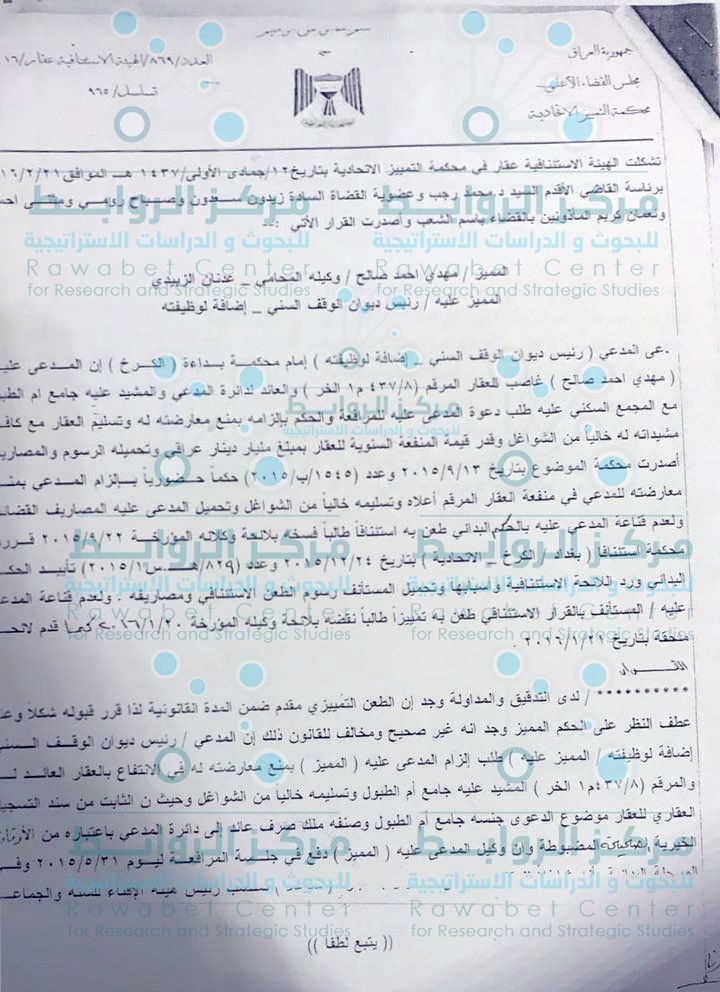 جمهورية العراق
مجلس القضاء الأعلى
محكمة التمييز الاتحادية
العدد/٨٦٩/الهيئة الاستئنافية عقار/١٦
تسلسل/٩٦٥
تشكلت الهيئة الاستئنافية عقار في محكمة التمييز الاتحادية بتاريخ ١٢/جمادى الأولى/١٤٣٧ هـ الموافق ١٦/٢/٢١
برئاسة القاضي الأقدم السيد د.محمد رجب وعضوية القضاة السادة زيدون سعدون وصباح رومي ومثنى احمـ
ونعمان كريم المأذونين بالقضاء باسم الشعب وأصدرت القرار الأتي :--
المميز / مهدي احمد صالح / وكيله المحامي _ عدنان الزبيدي
المميز عليه / رئيس ديوان الوقف السني _ إضافة لوظيفته
ـعى المدعي ( رئيس ديوان الوقف السني _ إضافة لوظيفته ) إمام محكمة بداءة ( الكرخ ) إن المدعى عليـ
( مهدي احمد صالح ) غاصب للعقار المرقم (٤٣٧/٨ م١ الخر ) والعائد لدائرة المدعي والمشيد عليه جامع ام الطبـ
مع المجمع السكني عليه طلب دعوة المدعى عليه للمرافعة والحكم بإلزامه بمنع معارضته له وتسليم العقار مع كافـ
مشيداته له خالياً من الشواغل وقدر قيمة المنفعة السنوية للعقار بمبلغ مليار دينار عراقي وتحميله الرسوم والمصاريـ
أصدرت محكمة الموضوع بتاريخ ٢٠١٥/٩/١٣ وعدد (١٥٤٥/ب/٢٠١٥) حكماً حضورياً بإلزام المدعي بمنـ
معارضته للمدعي في منفعة العقار المرقم أعلاه وتسليمه خالياً من الشواغل وتحميل المدعى عليه المصاريف القضائـ
ولعدم قناعة المدعى عليه بالحكم البدائي طعن به استئنافاً طالباً فسخه بلائحة وكلائه المؤرخة ٢٠١٥/٩/٢٢ قررت
محكمة استئناف ( بغداد / الكرخ _ الاتحادية ) بتاريخ ٢٠١٥/١٢/٢٤ وعدد (٨٢٩/هـ.س١/٢٠١٥) تأييد الحكـ
البدائي ورد اللائحة الاستئنافية وأسبابها وتحميل المستأنف رسوم الطعن الاستئنافي ومصاريفه . ولعدم قناعة المدعـ
عليه / المستأنف بالقرار الاستئنافي طعن به تمييزاً طالباً نقضه بلائحة وكيله المؤرخة ٢٠١٦/١/٢٠ كما قدم لائحـ
ملحقة بتاريخ ٢٠١٦/١/٢١ .
القـــرار
********** / لدى التدقيق والمداولة وجد إن الطعن التمييزي مقدم ضمن المدة القانونية لذا قرر قبوله شكلاً وعنـ
عطف النظر على الحكم المميز وجد انه غير صحيح ومخالف للقانون ذلك إن المدعي / رئيس ديوان الوقف السنـ
إضافة لوظيفته / المميز عليه ) طلب إلزام المدعى عليه ( المميز ) بمنع معارضته له في الانتفاع بالعقار العائد لـ
والمرقم (٤٣٧/٨م١ الخر ) المشيد عليه جامع أم الطبول وتسليمه خالياً من الشواغل وحيث ن الثابت من سند التسجيـ
العقاري للعقار موضوع الدعوى جنسه جامع أم الطبول وصنفه ملك صرف عائد إلى دائرة المدعي باعتباره من الأوقاف
الخيرية المضبوطة وان وكيل المدعى عليه ( المميز ) دفع في جلسة المرافعة ليوم ٢٠١٥/٥/٣١ وفي
رئيس هيئة الإفتاء للسنة والجماعـ
(( يتبع لطفا ))
مركز الروابط
للبحوث و الدراسات الاستراتيجية
Rawabet Center
for Research and Strategic Studies